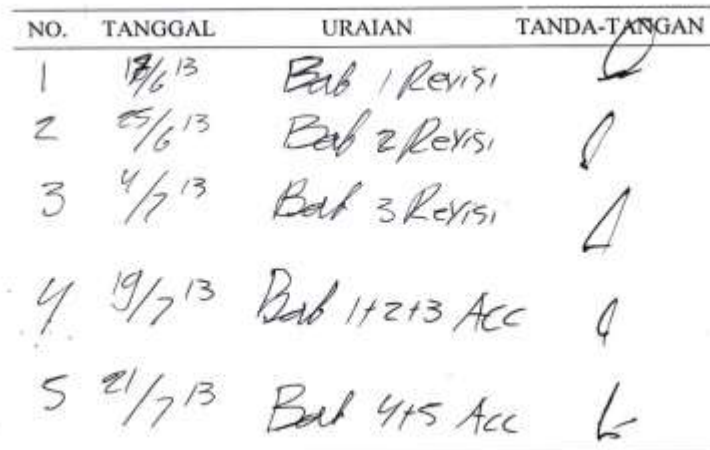 NO. TANGGAL URAIAN TANDA-TANGAN
1 /6 13 Bab 1 Revisi
2 25/6 13 Bab 2 Revisi
3 4/7 13 Bab 3 Revisi
4 19/7 13 Bab 1+2+3 Acc
5 21/7 13 Bab 4+5 Acc